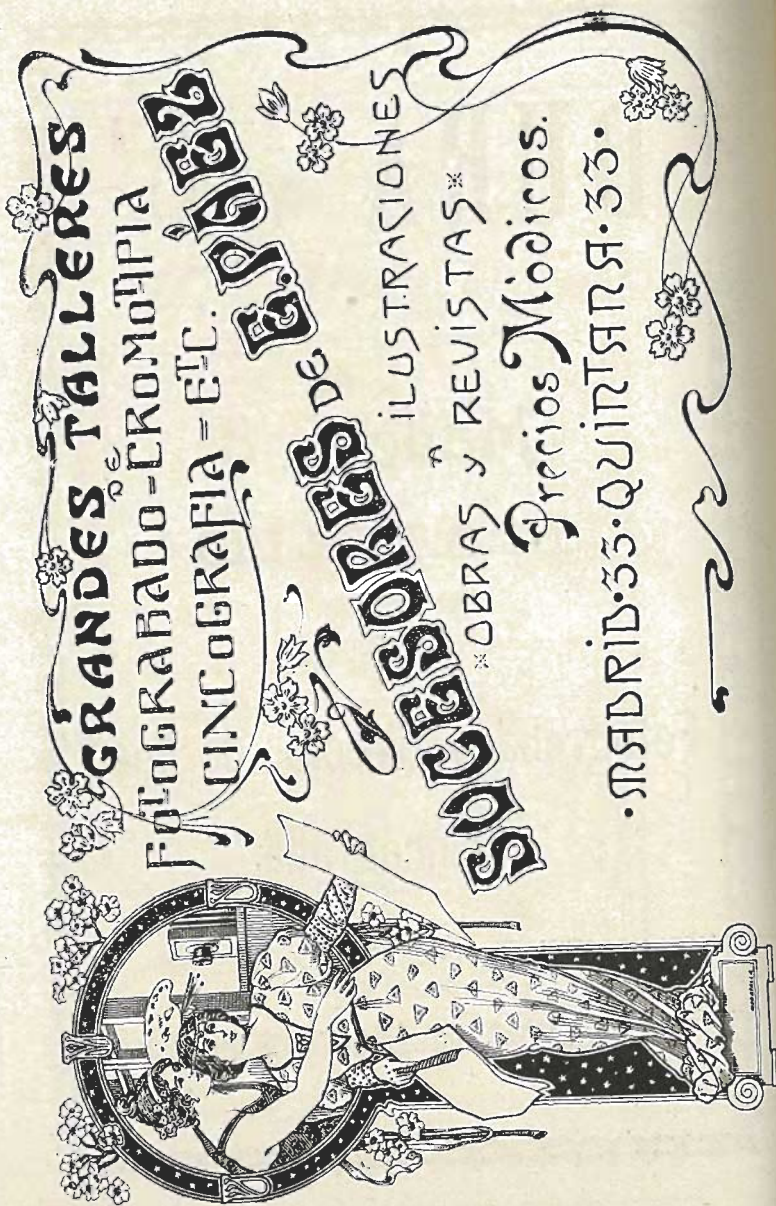 GRANDES TALLERES
DE
FOTOGRABADO=CROMOTIPIA
CINCOGRAFIA=ETC.
SUCESORES DE E. PÁEZ
ILUSTRACIONES
OBRAS Y REVISTAS
Precios Módicos.
·MADRID·33·QUINTANA·33·